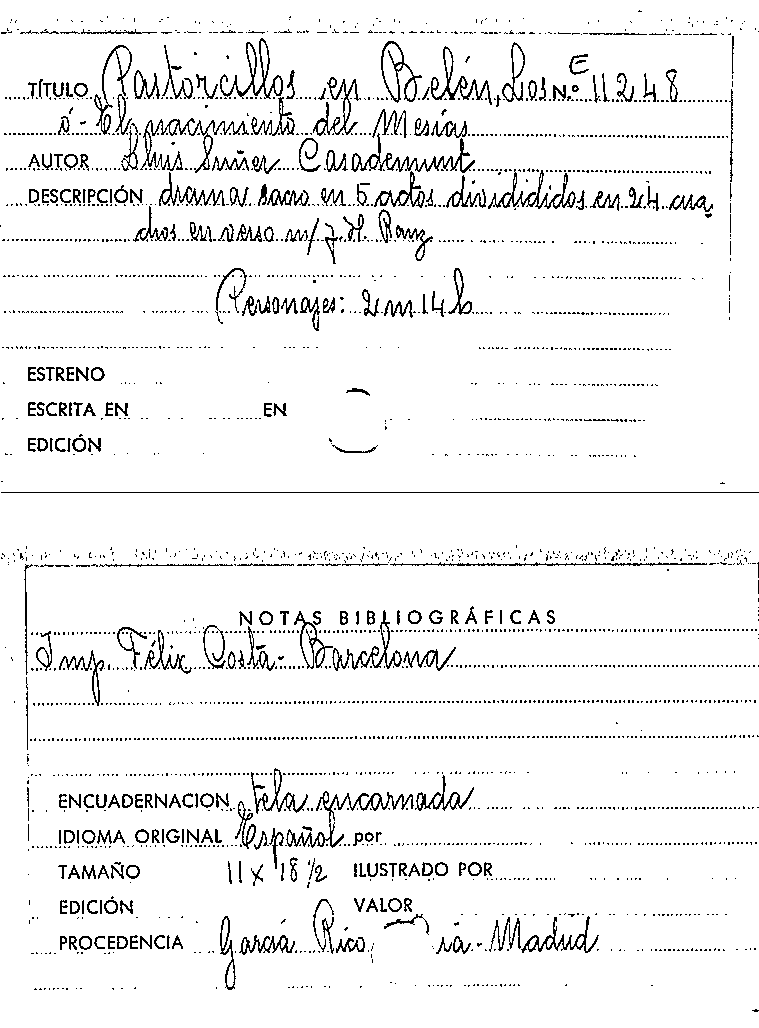 TÍTULO Pastorcillos en Belén, Los N.º E 11248
ó - El nacimiento del Mesías
AUTOR Lluis Suñer Casademunt
DESCRIPCIÓN drama sacro en 5 actos divididídos en 24 cua
dros en verso m/ J. H.
Personajes: 2 m 14 h
ESTRENO
ESCRITA EN EN
EDICIÓN
NOTAS BIBLIOGRÁFICAS
Imp. Félix Costa - Barcelona
ENCUADERNACION tela encarnada
IDIOMA ORIGINAL Español por
TAMAÑO 11 x 18 1/2 ILUSTRADO POR
EDICIÓN VALOR
PROCEDENCIA García Rico, ia - Madrid